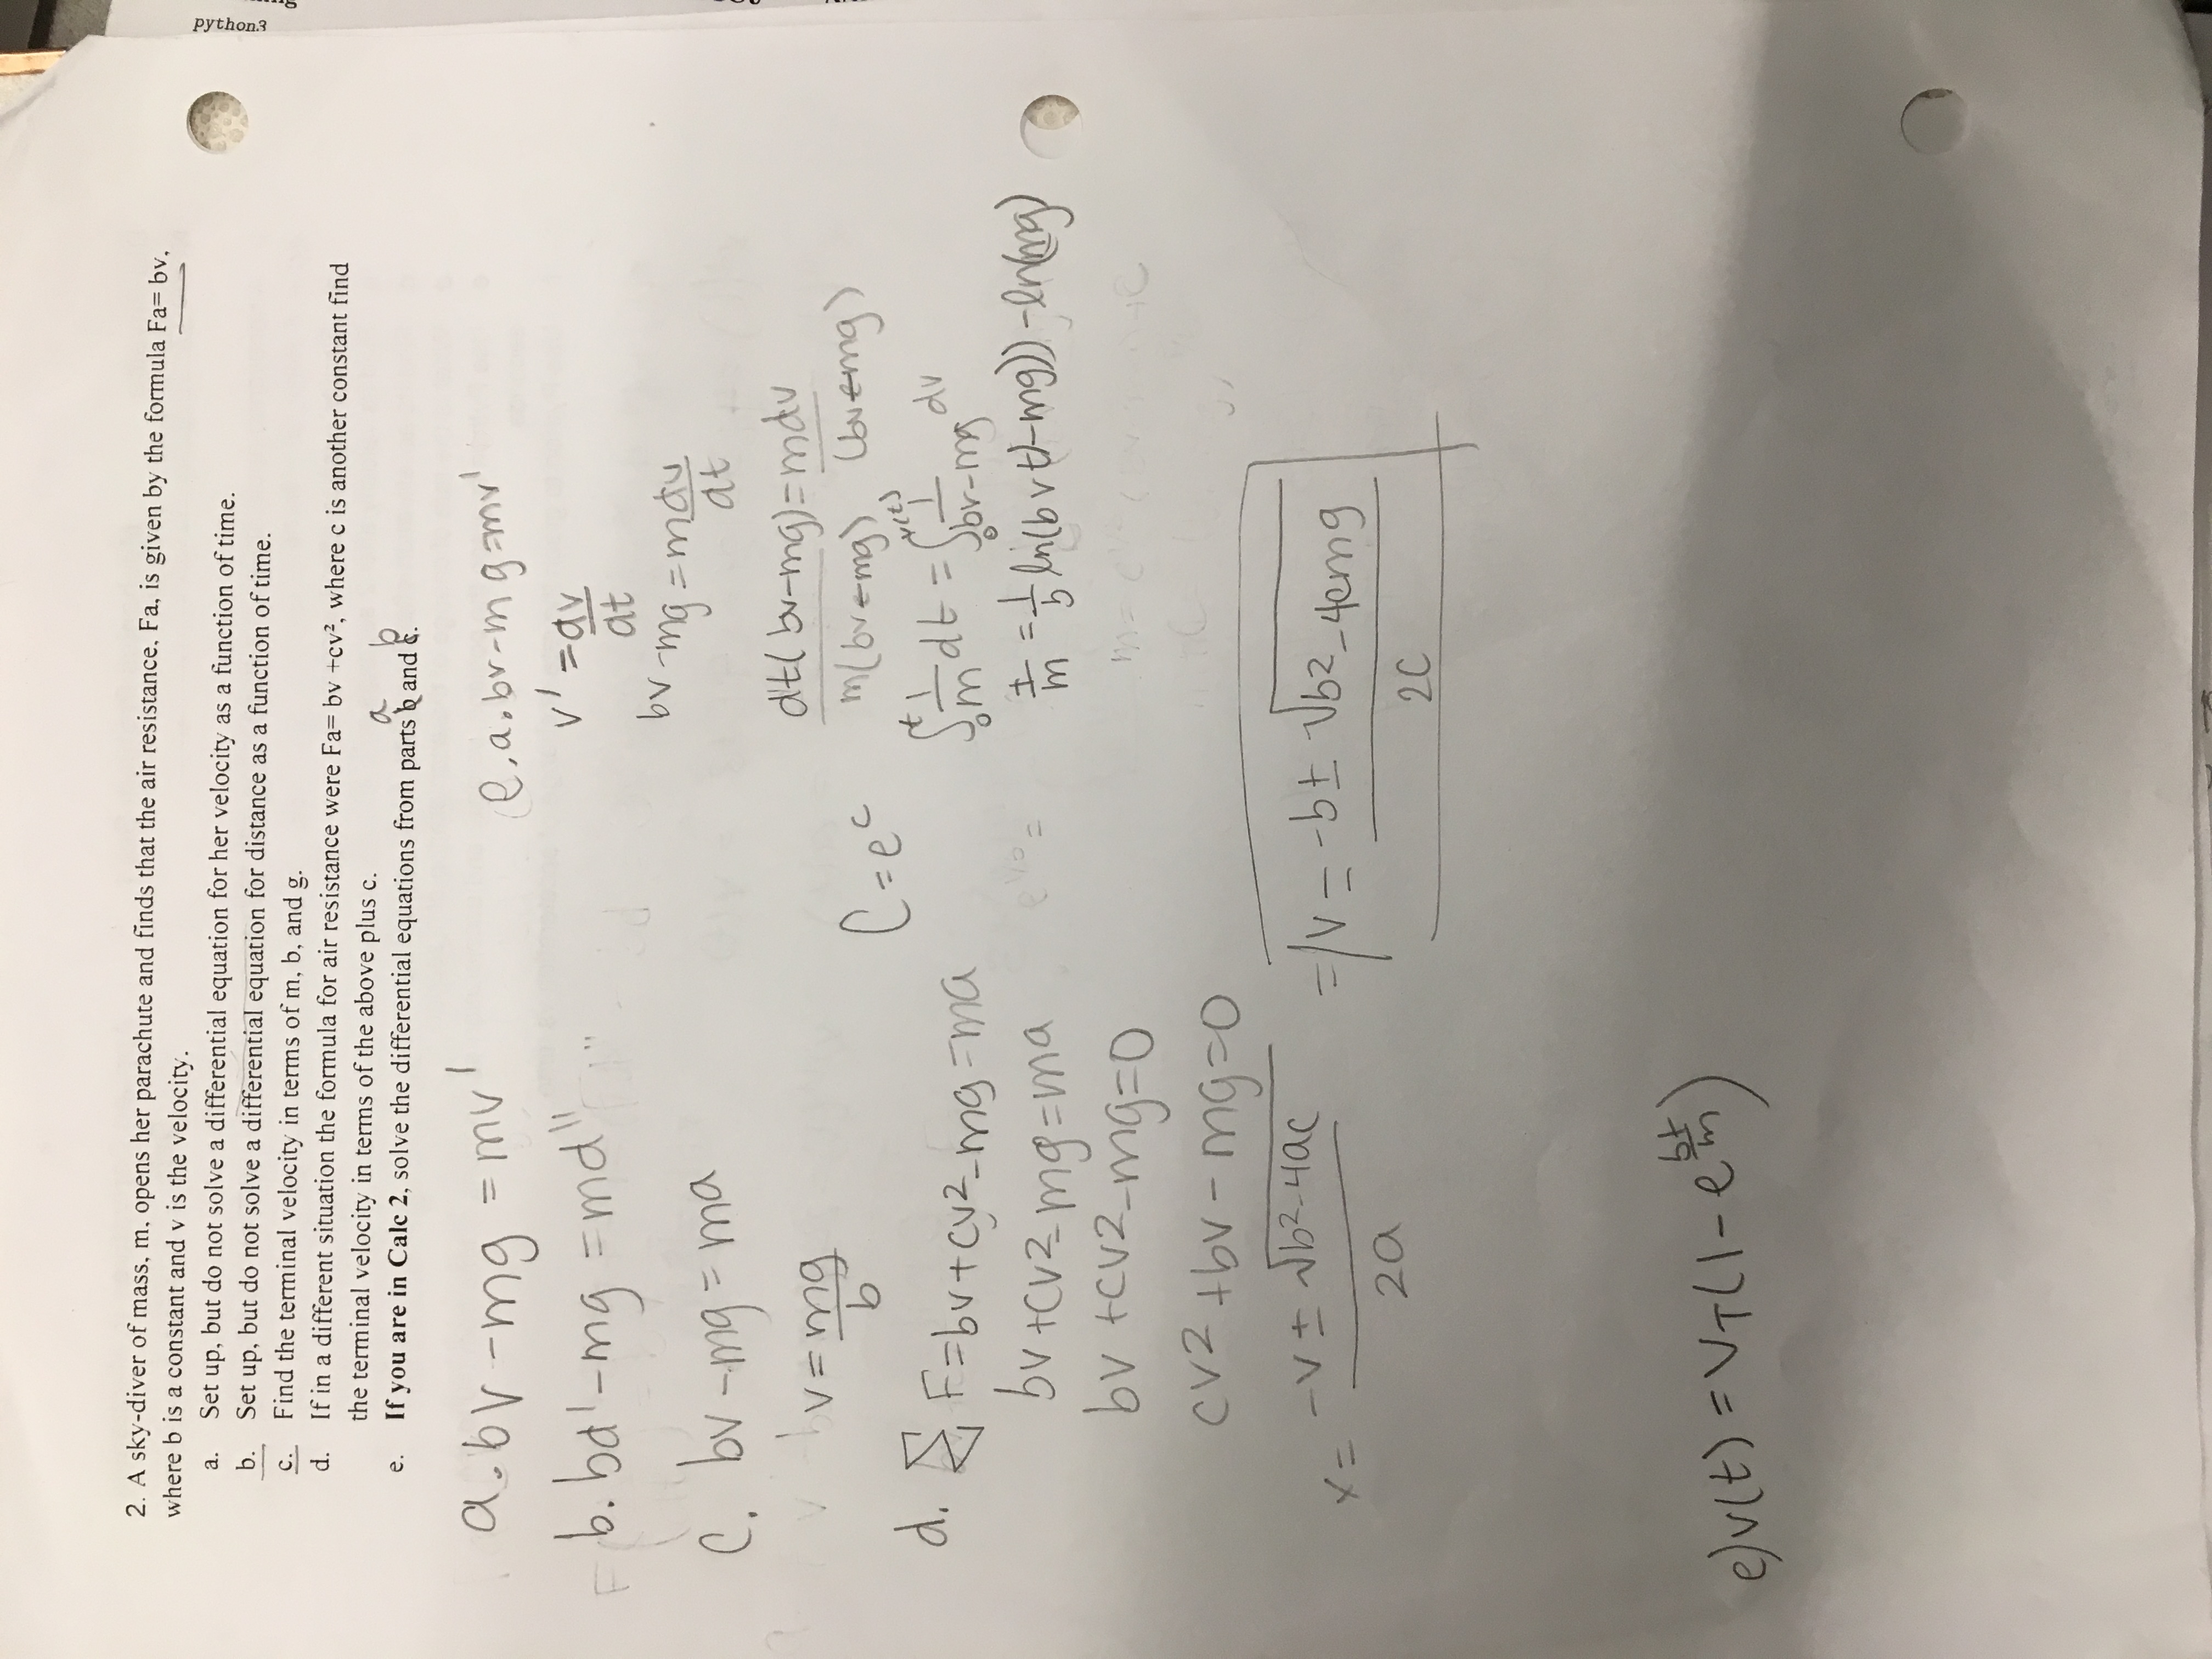 2. A sky-diver of mass, m, opens her parachute and finds that the air resistance, Fa, is given by the formula Fa= bv,
where b is a constant and v is the velocity.
a. Set up, but do not solve a differential equation for her velocity as a function of time.
b. Set up, but do not solve a differential equation for distance as a function of time.
c. Find the terminal velocity in terms of m, b, and g.
d. If in a different situation the formula for air resistance were Fa= bv +cv², where c is another constant find
the terminal velocity in terms of the above plus c.
a b
e. If you are in Calc 2, solve the differential equations from parts b and c.
a. bv - mg = mv'
b. bd' - mg = md"
c. bv - mg = ma
v = mg/b
d. Σ F = bv + cv² - mg = ma
bv + cv² - mg = ma
bv + cv² - mg = 0
cv² + bv - mg = 0
x = (-v ± √(b² - 4ac))/2a = v = (-b ± √(b² - 4cmg))/2c
e. a. bv - mg = mv'
v' = dv/dt
bv - mg = m dv/dt
dt(bv - mg)/m(bv - mg) = mdv/(bv - mg)
C = e^c
∫₀^t 1/m dt = ∫₀^v(t) 1/(bv - mg) dv
t/m = 1/b ln(bv(t) - mg)) - ln(mg)
e) v(t) = V_T(1 - e^(bt/m))
python3